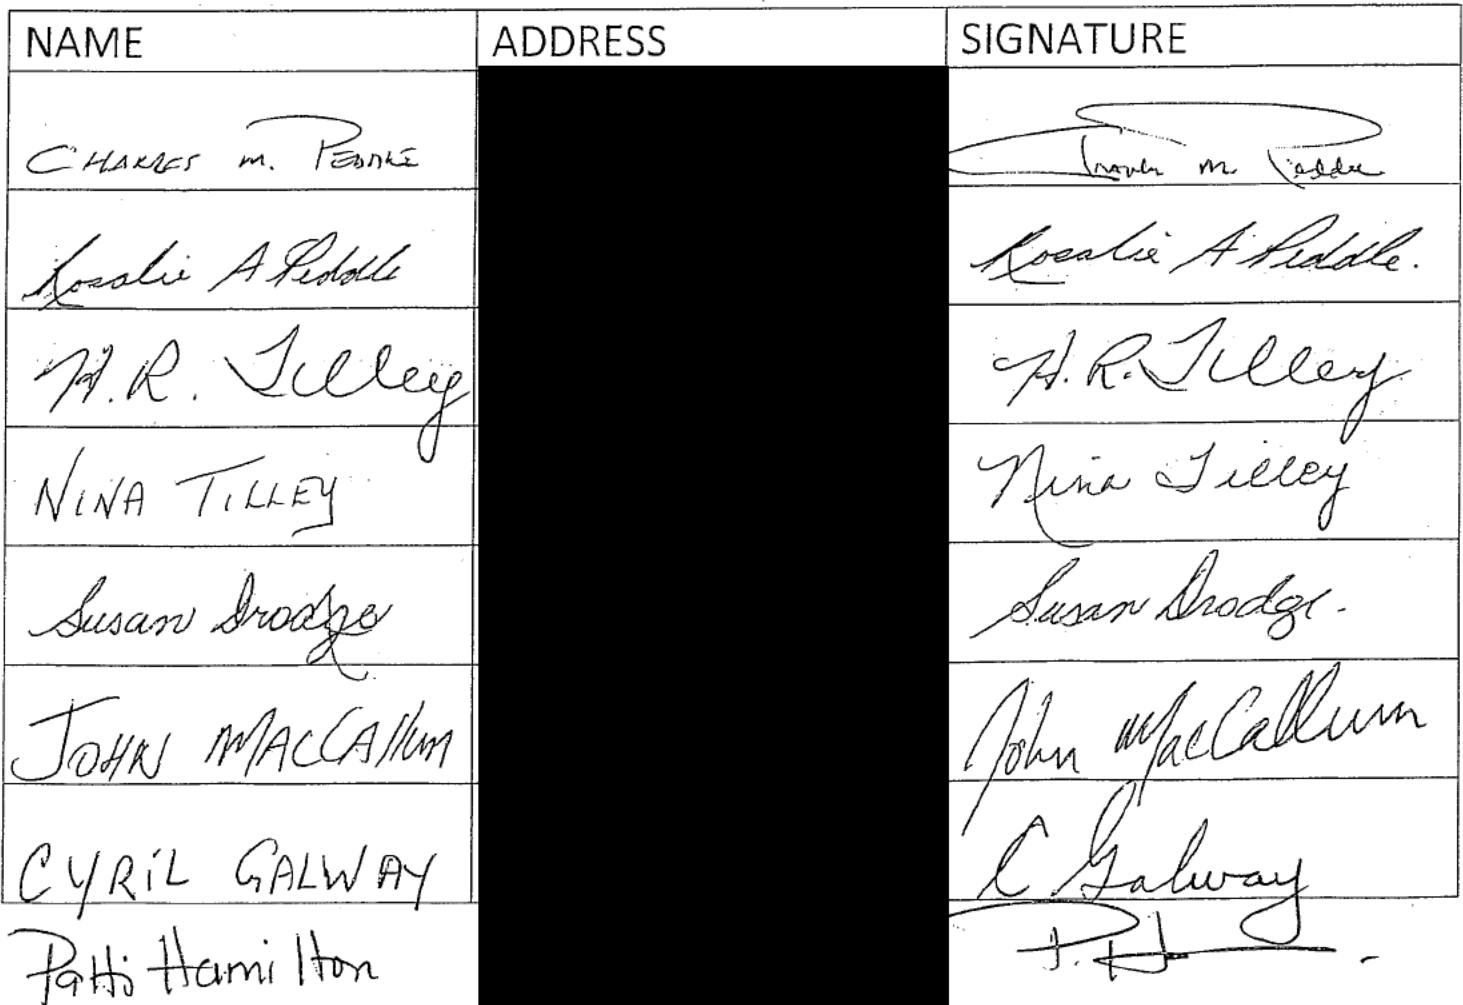 NAME ADDRESS SIGNATURE
CHARLES M. PEDDLE Charles M. Peddle
Rosalie A Peddle Rosalie A Peddle.
H.R. Tilley H.R. Tilley
NINA TILLEY Nina Tilley
Susan Drodge Susan Drodge.
JOHN MACCAllum John MacCallum
CYRiL GALWAY C Galway
Patti Hamilton P. H